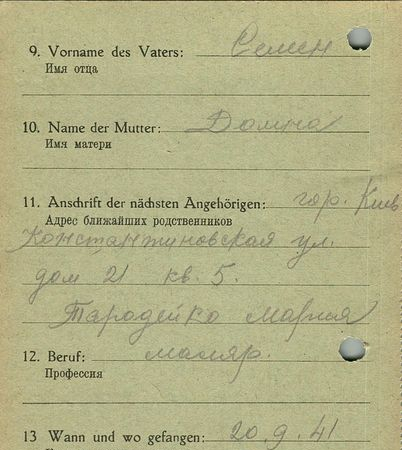 9. Vorname des Vaters: Семен
Имя отца
10. Name der Mutter: Домна
Имя матери
11. Anschrift der nächsten Angehörigen: гор. Киев
Адрес ближайших родственников
Константиновская ул.
дом 21 кв. 5.
Тародейко Мария
12. Beruf: маляр.
Профессия
13 Wann und wo gefangen: 20.9.41